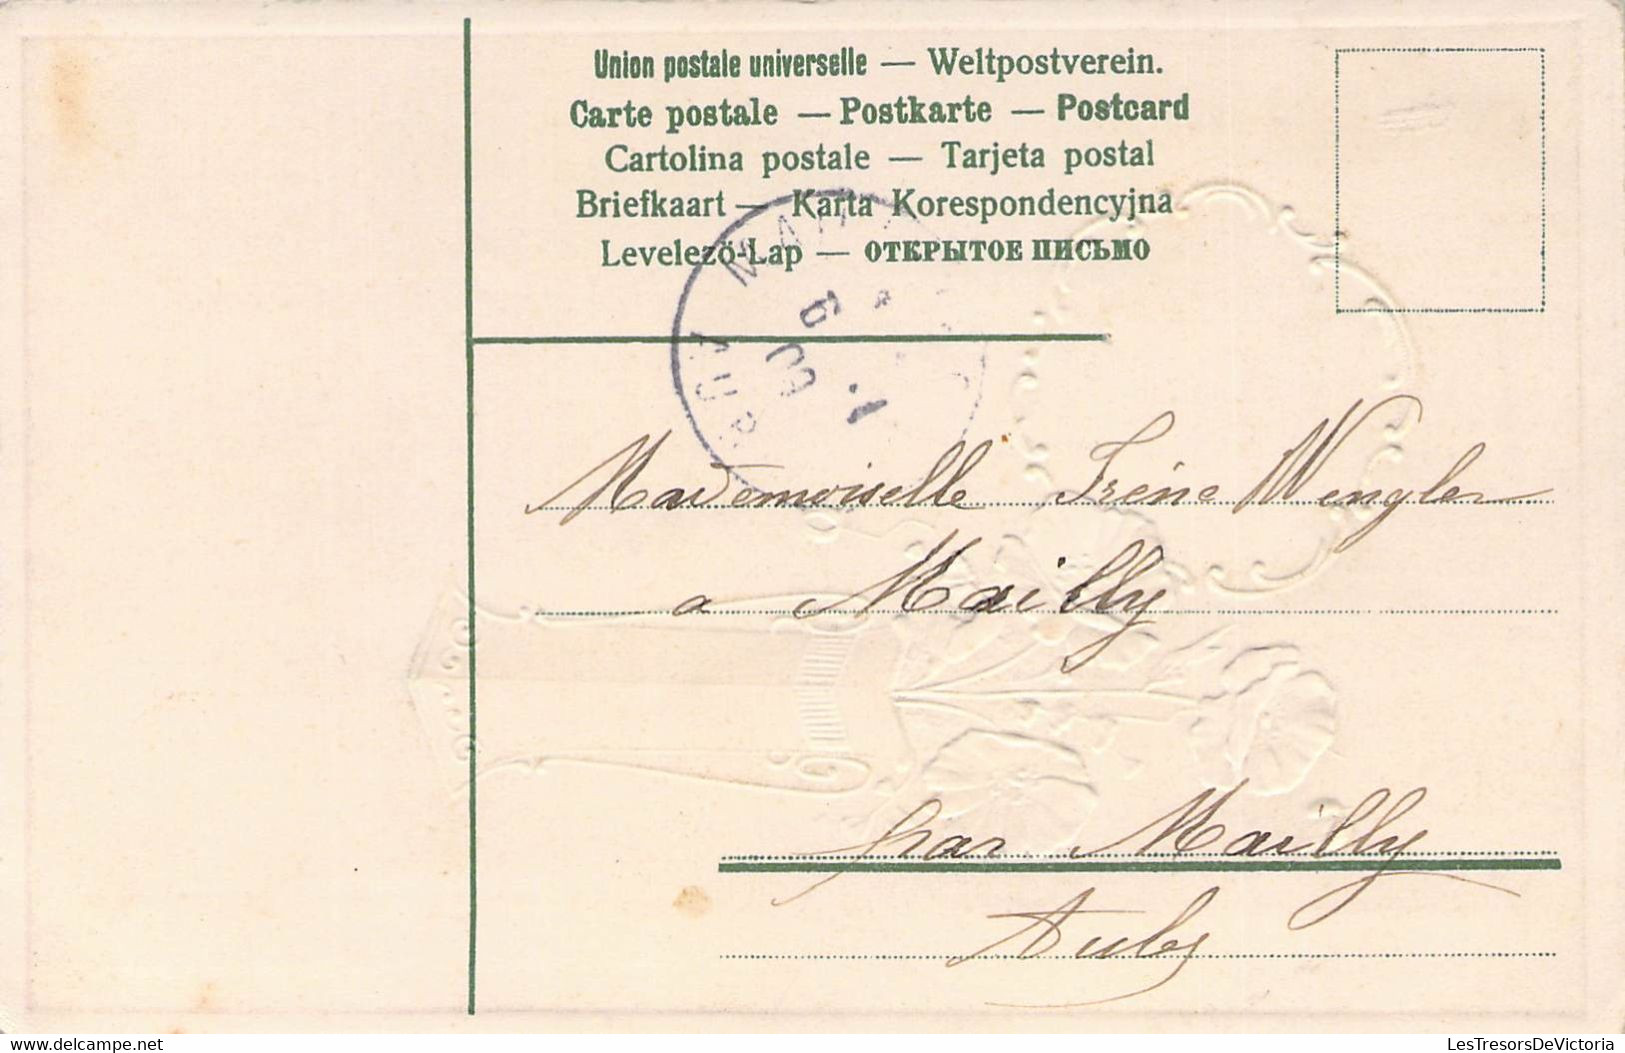 Union postale universelle — Weltpostverein.
Carte postale — Postkarte — Postcard
Cartolina postale — Tarjeta postal
Briefkaart — Karta Korespondencyjna
Levelezö-Lap — ОТКРЫТОЕ ПИСЬМО
MAILLY
AUBE
Mademoiselle Irène Wengler
a Mailly
par Mailly
Aube
www.delcampe.net
LesTresorsDeVictoria